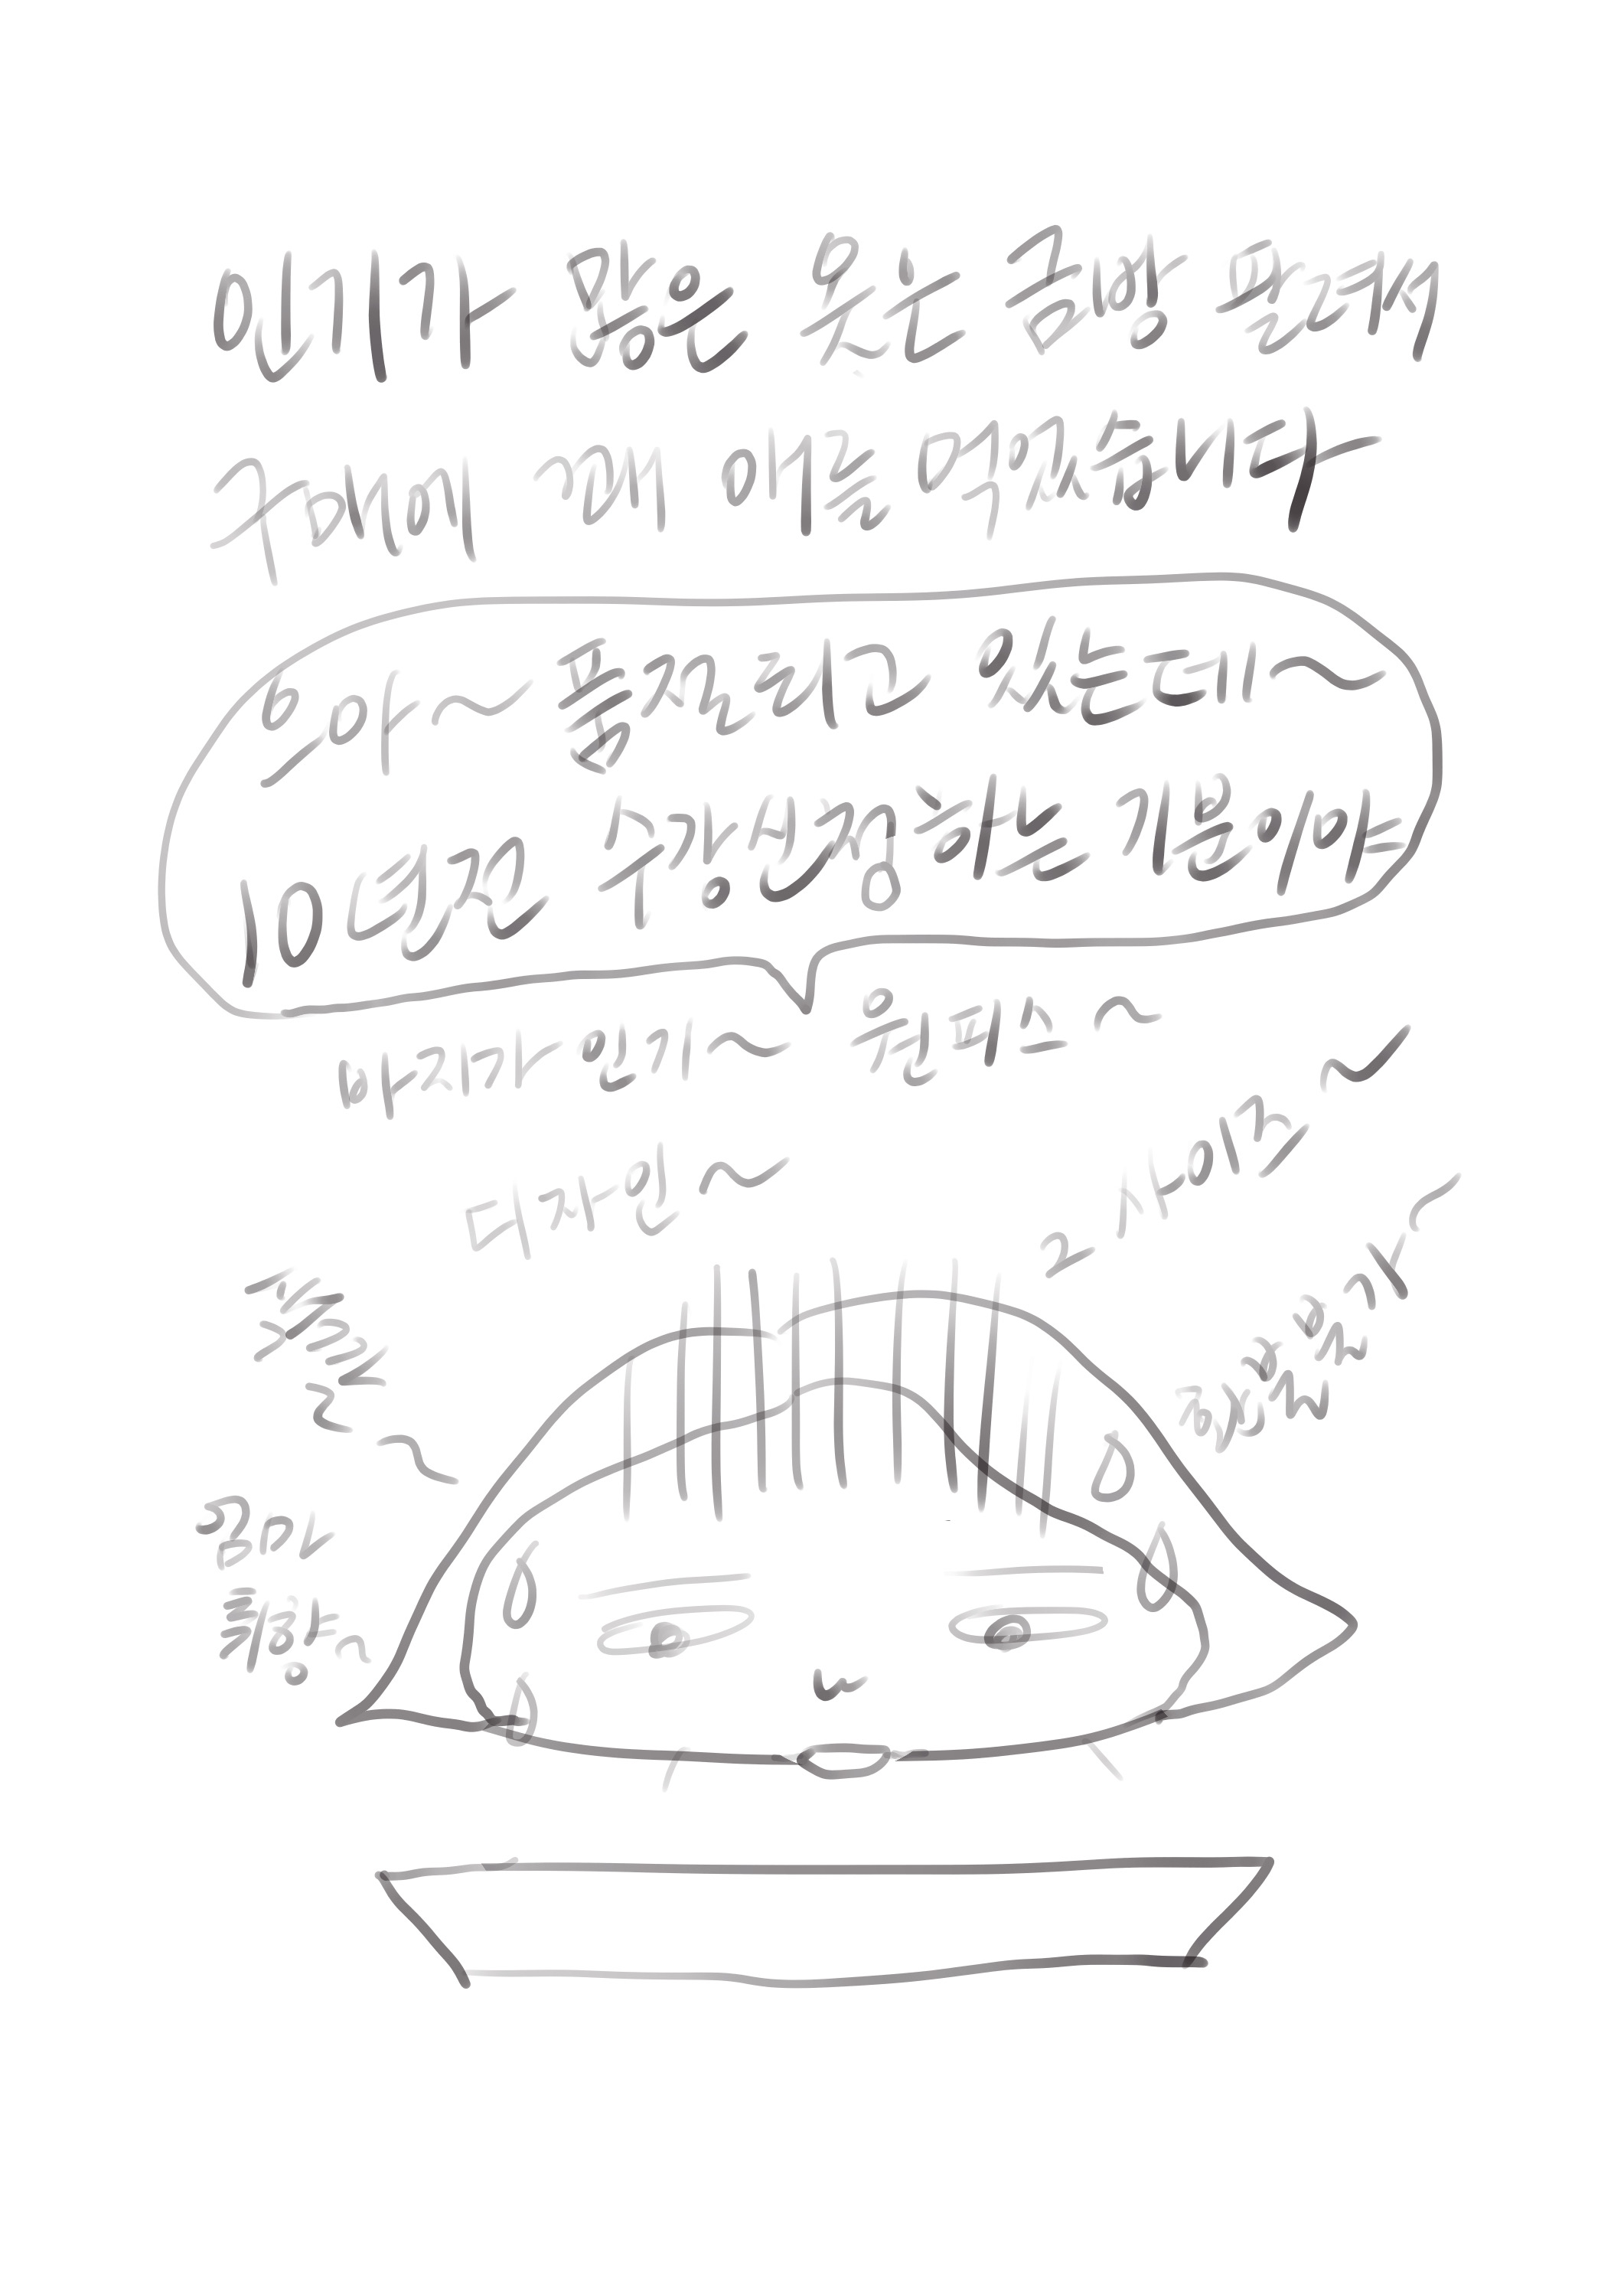 인기가 많은 옷은 금방 품절돼서
구매에 꽤 애를 먹었습니다
으아~ 품절되고 있는데~
10년전 수강신청하는 기분이야
바지가 인기~ 원피스~
디자인~
2 사이즈~
품절~
환불불가~